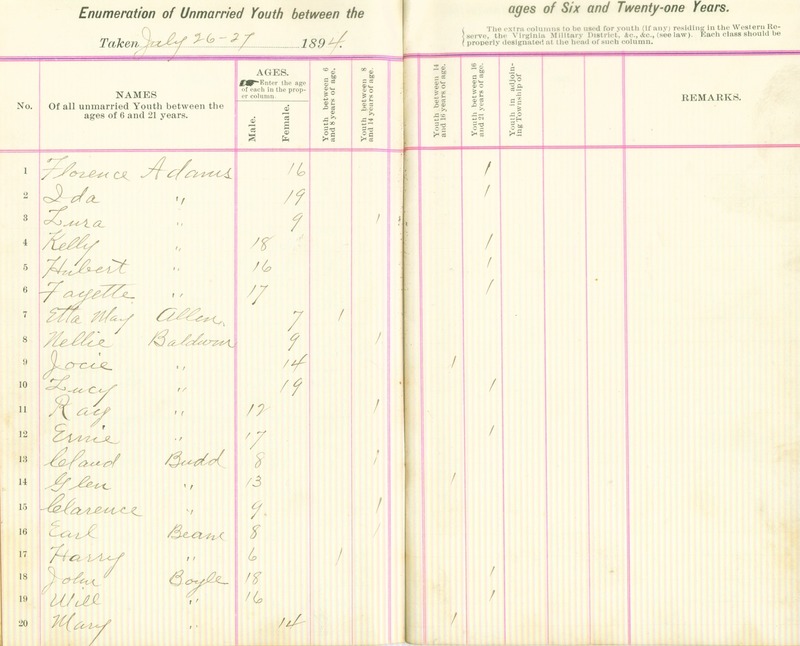 Enumeration of Unmarried Youth between the ages of Six and Twenty-one Years.
Taken July 26-27 1894.
The extra columns to be used for youth (if any) residing in the Western Re-
serve, the Virginia Military District, &c., &c., (see law). Each class should be
properly designated at the head of such column.
No.
NAMES
Of all unmarried Youth between the
ages of 6 and 21 years.
AGES.
Enter the age
of each in the prop-
er column.
Male.
Female.
Youth between 6
and 8 years of age.
Youth between 8
and 14 years of age.
Youth between 14
and 16 years of age.
Youth between 16
and 21 years of age.
Youth in adjoin-
ing Township of
REMARKS.
1 Florence Adams 16 1
2 Ida " 19 1
3 Lura " 9 1
4 Kelly " 18 1
5 Hubert " 16 1
6 Fayette " 17 1
7 Etta May Allen. 7 1
8 Nellie Baldwin 9 1
9 Jocie " 14 1
10 Lucy " 19 1
11 Ray " 12 1
12 Ernie " 17 1
13 Claud Budd 8 1
14 Glen " 13 1
15 Clarence " 9. 1
16 Earl Beam 8 1
17 Harry " 6 1
18 John Boyle 18 1
19 Will " 16 1
20 Mary " 14 1